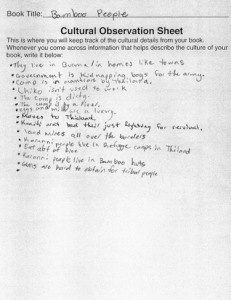 Book Title: Bamboo People
Cultural Observation Sheet
This is where you will keep track of the cultural details from your book.
Whenever you come across information that helps describe the culture of your
book, write it below:
• They live in Burma in homes like towns
• Government is kidnapping boys for the army.
• Camp is in mountains by Thailand.
• Chiko isn't used to work
• The camp is dirty.
• The camp is by a river.
• eggs and milk are a luxury.
• Moves to Thailand.
• Karenni aren't bad their just fighting for survival.
• land mines all over the borders
• Karenni people live in Refugee camps in Thailand
• Eat alot of Rice
• Karenni people live in Bamboo huts
• are hard to obtain for tribal people